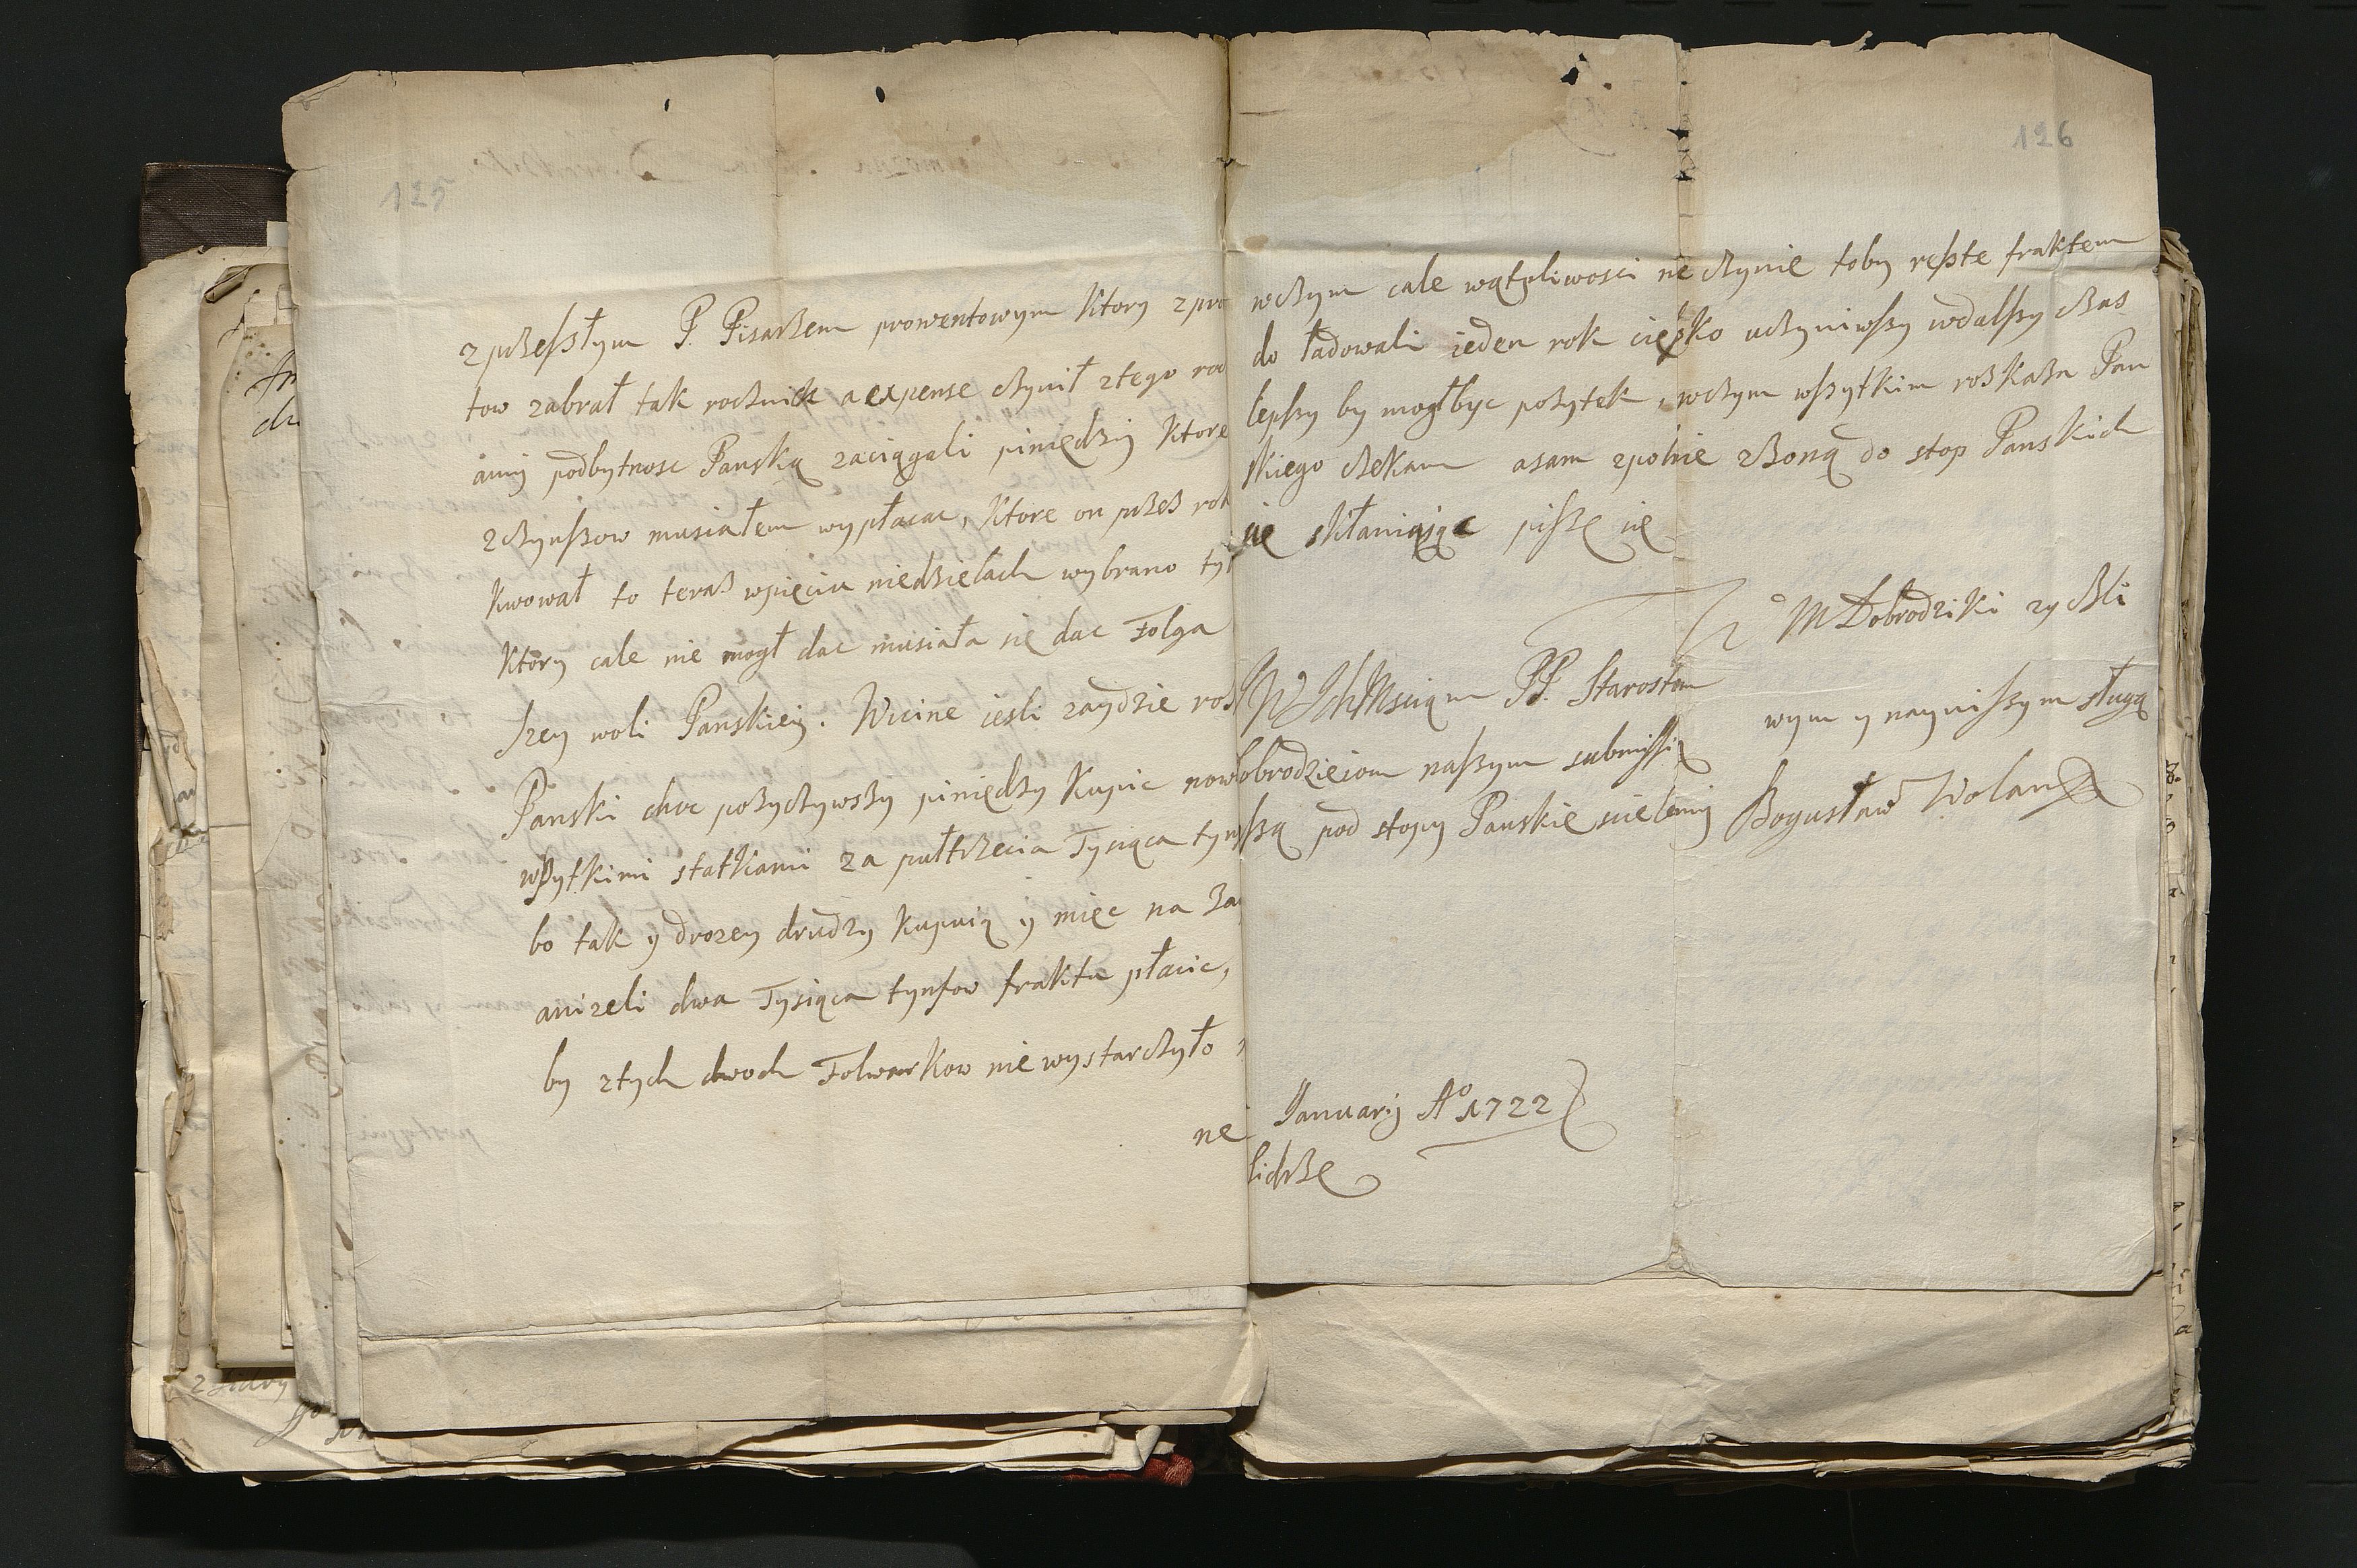 125
zprzeszłym P. Pisarzem prowentowym Ktory zpro
tow zabrał tak rocznick a expense czynił ztego ro
amy podbytnosc Panską zaciągali piniędzy Ktore
zczynszow musiałem wypłacac, Ktore on przez rok
Kwował to teraz wpięciu niedzielach wybrano
Ktory cale nie mogł dac musiała się dac Folga
szey woli Panskiey. Wicine iesli zaydzie ros
Panski chce pozyczywszy piniędzy Kupic now
wszytkimi statkami za pułtrzecia Tysiąca tyn
bo tak y drozey drudzy Kupuią y miec na
anizeli dwa Tysiąca tynfow fraktu płacic,
by ztych dwoch Folwarkow nie wystarczyło
ne
126
wczym cale wątpliwosci ne czynie toby reszte fraktem
do ładowali ieden rok cięsko uczyniwszy wdalszy czas
lepszy by mogł byc pozytek, wczym wszytkim roskazu Pan
skiego czekam asam zpolnie zzoną do stop Panskich
się skłaniaiąc piszę się
M Dobrodziki zyczli
WIchMsciąm PP. Starostom
wym y nayniszym sługą
obrodzieiom naszym submissi
szą pod stopy Panskie scielemy
Bogusław Wolan
January Ao 1722
lichrze